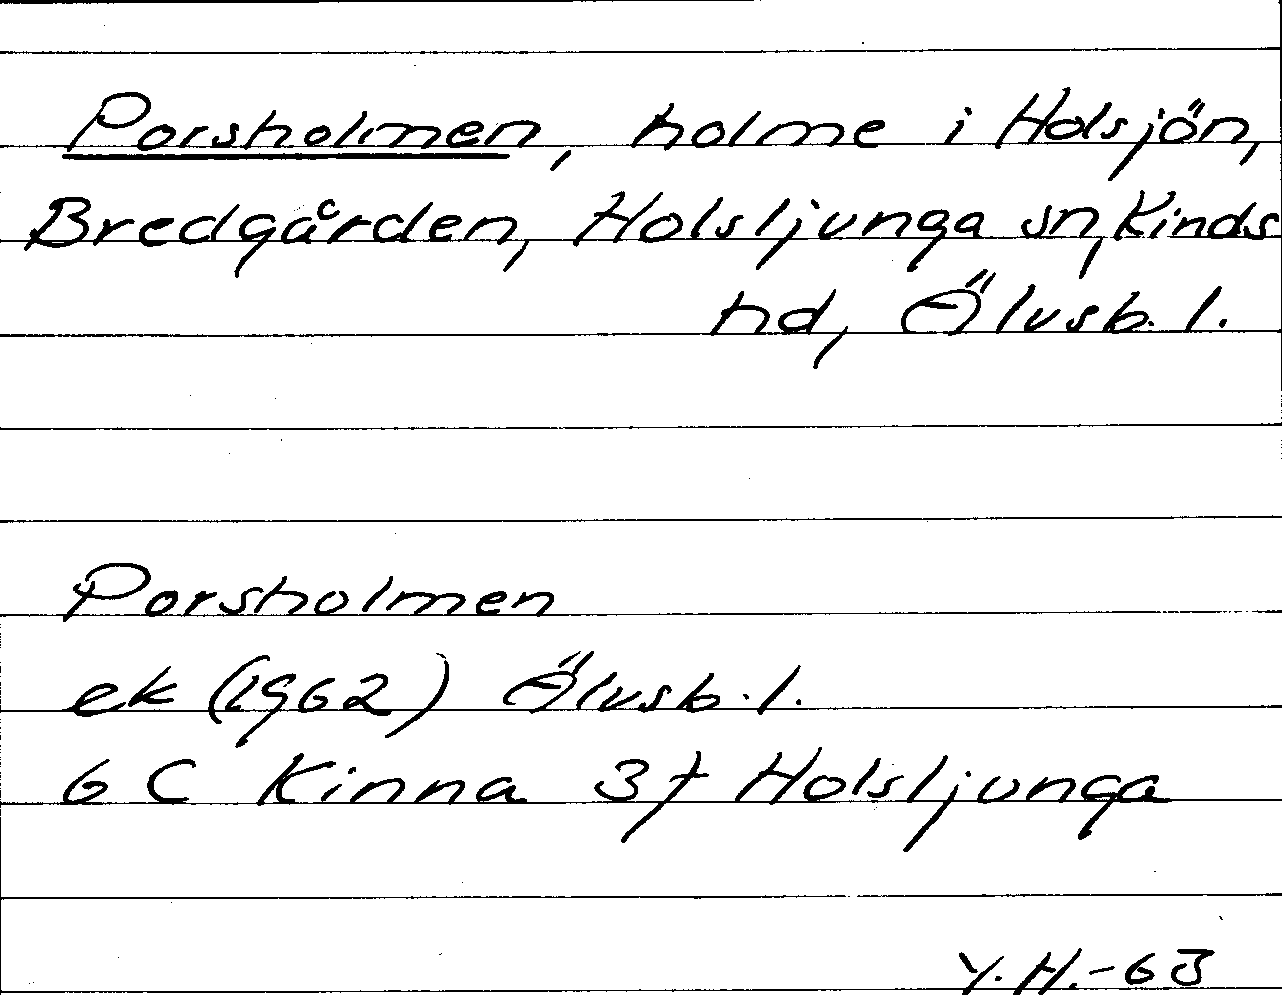 Porsholmen, holme i Holsjön,
Bredgården, Holsljunga sn, Kinds
hd, Älvsb. l.
Porsholmen
ek (1962) Älvsb. l.
6 C Kinna 3f Holsljunga
Y. H. -63